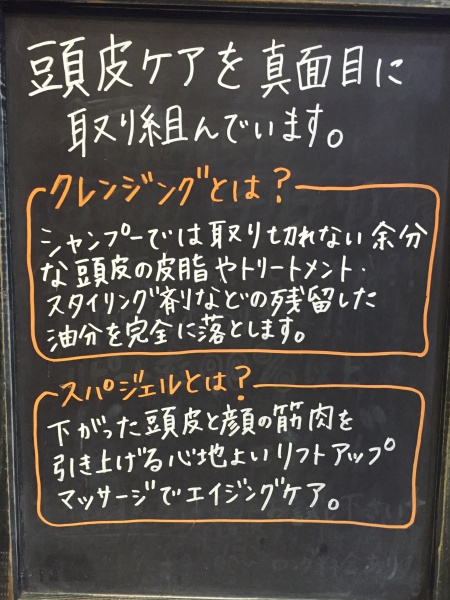 頭皮ケアを真面目に
取り組んでいます。
クレンジングとは？
シャンプーでは取り切れない余分
な頭皮の皮脂やトリートメント・
スタイリング剤などの残留した
油分を完全に落とします。
スパジェルとは？
下がった頭皮と顔の筋肉を
引き上げる心地よいリフトアップ
マッサージでエイジングケア。